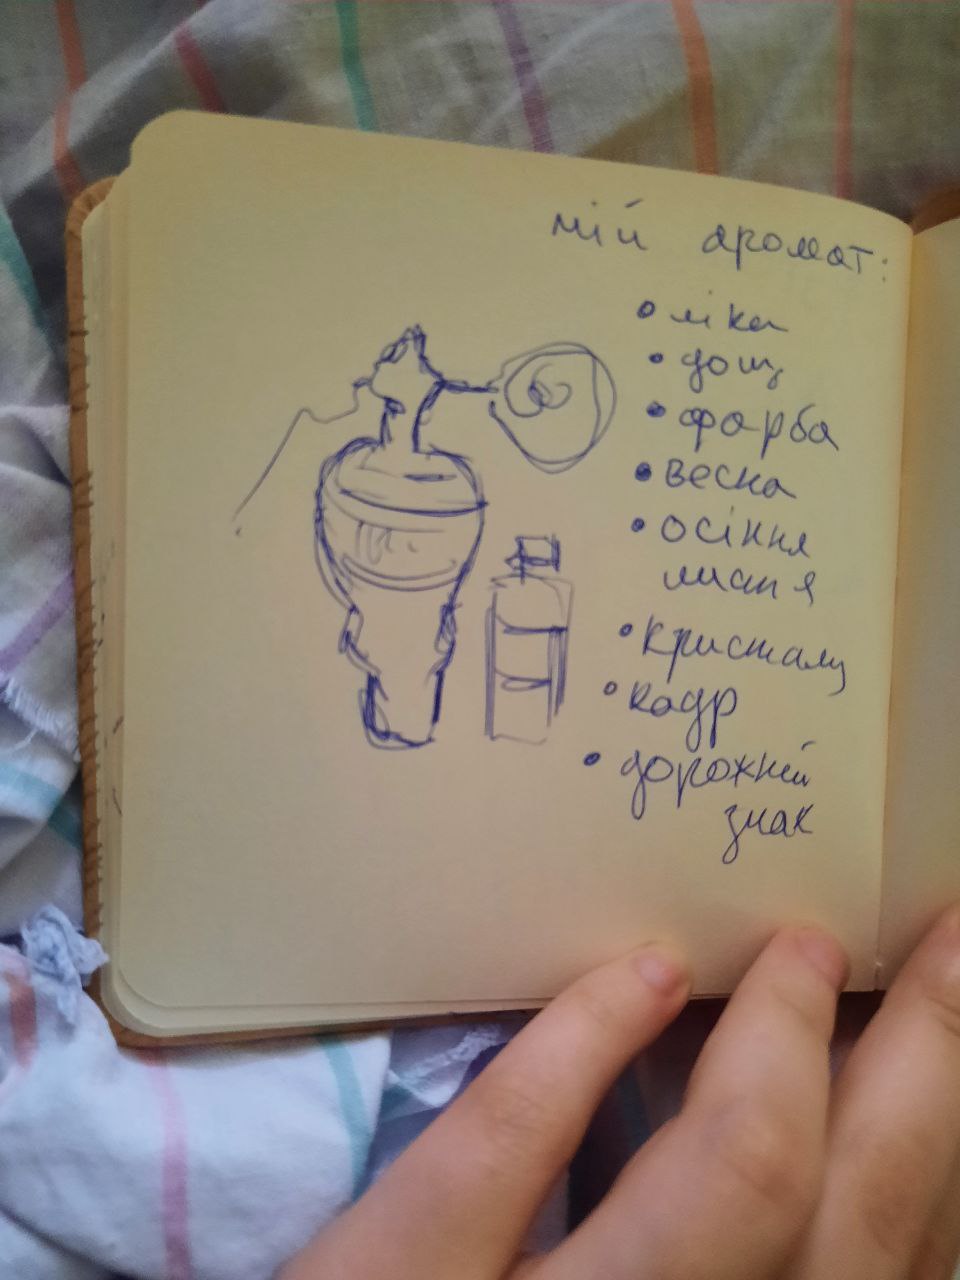 мій аромат:
• ліки
• дощ
• фарба
• весна
• осіннє
листя
• кристали
• кадр
• дорожній
знак